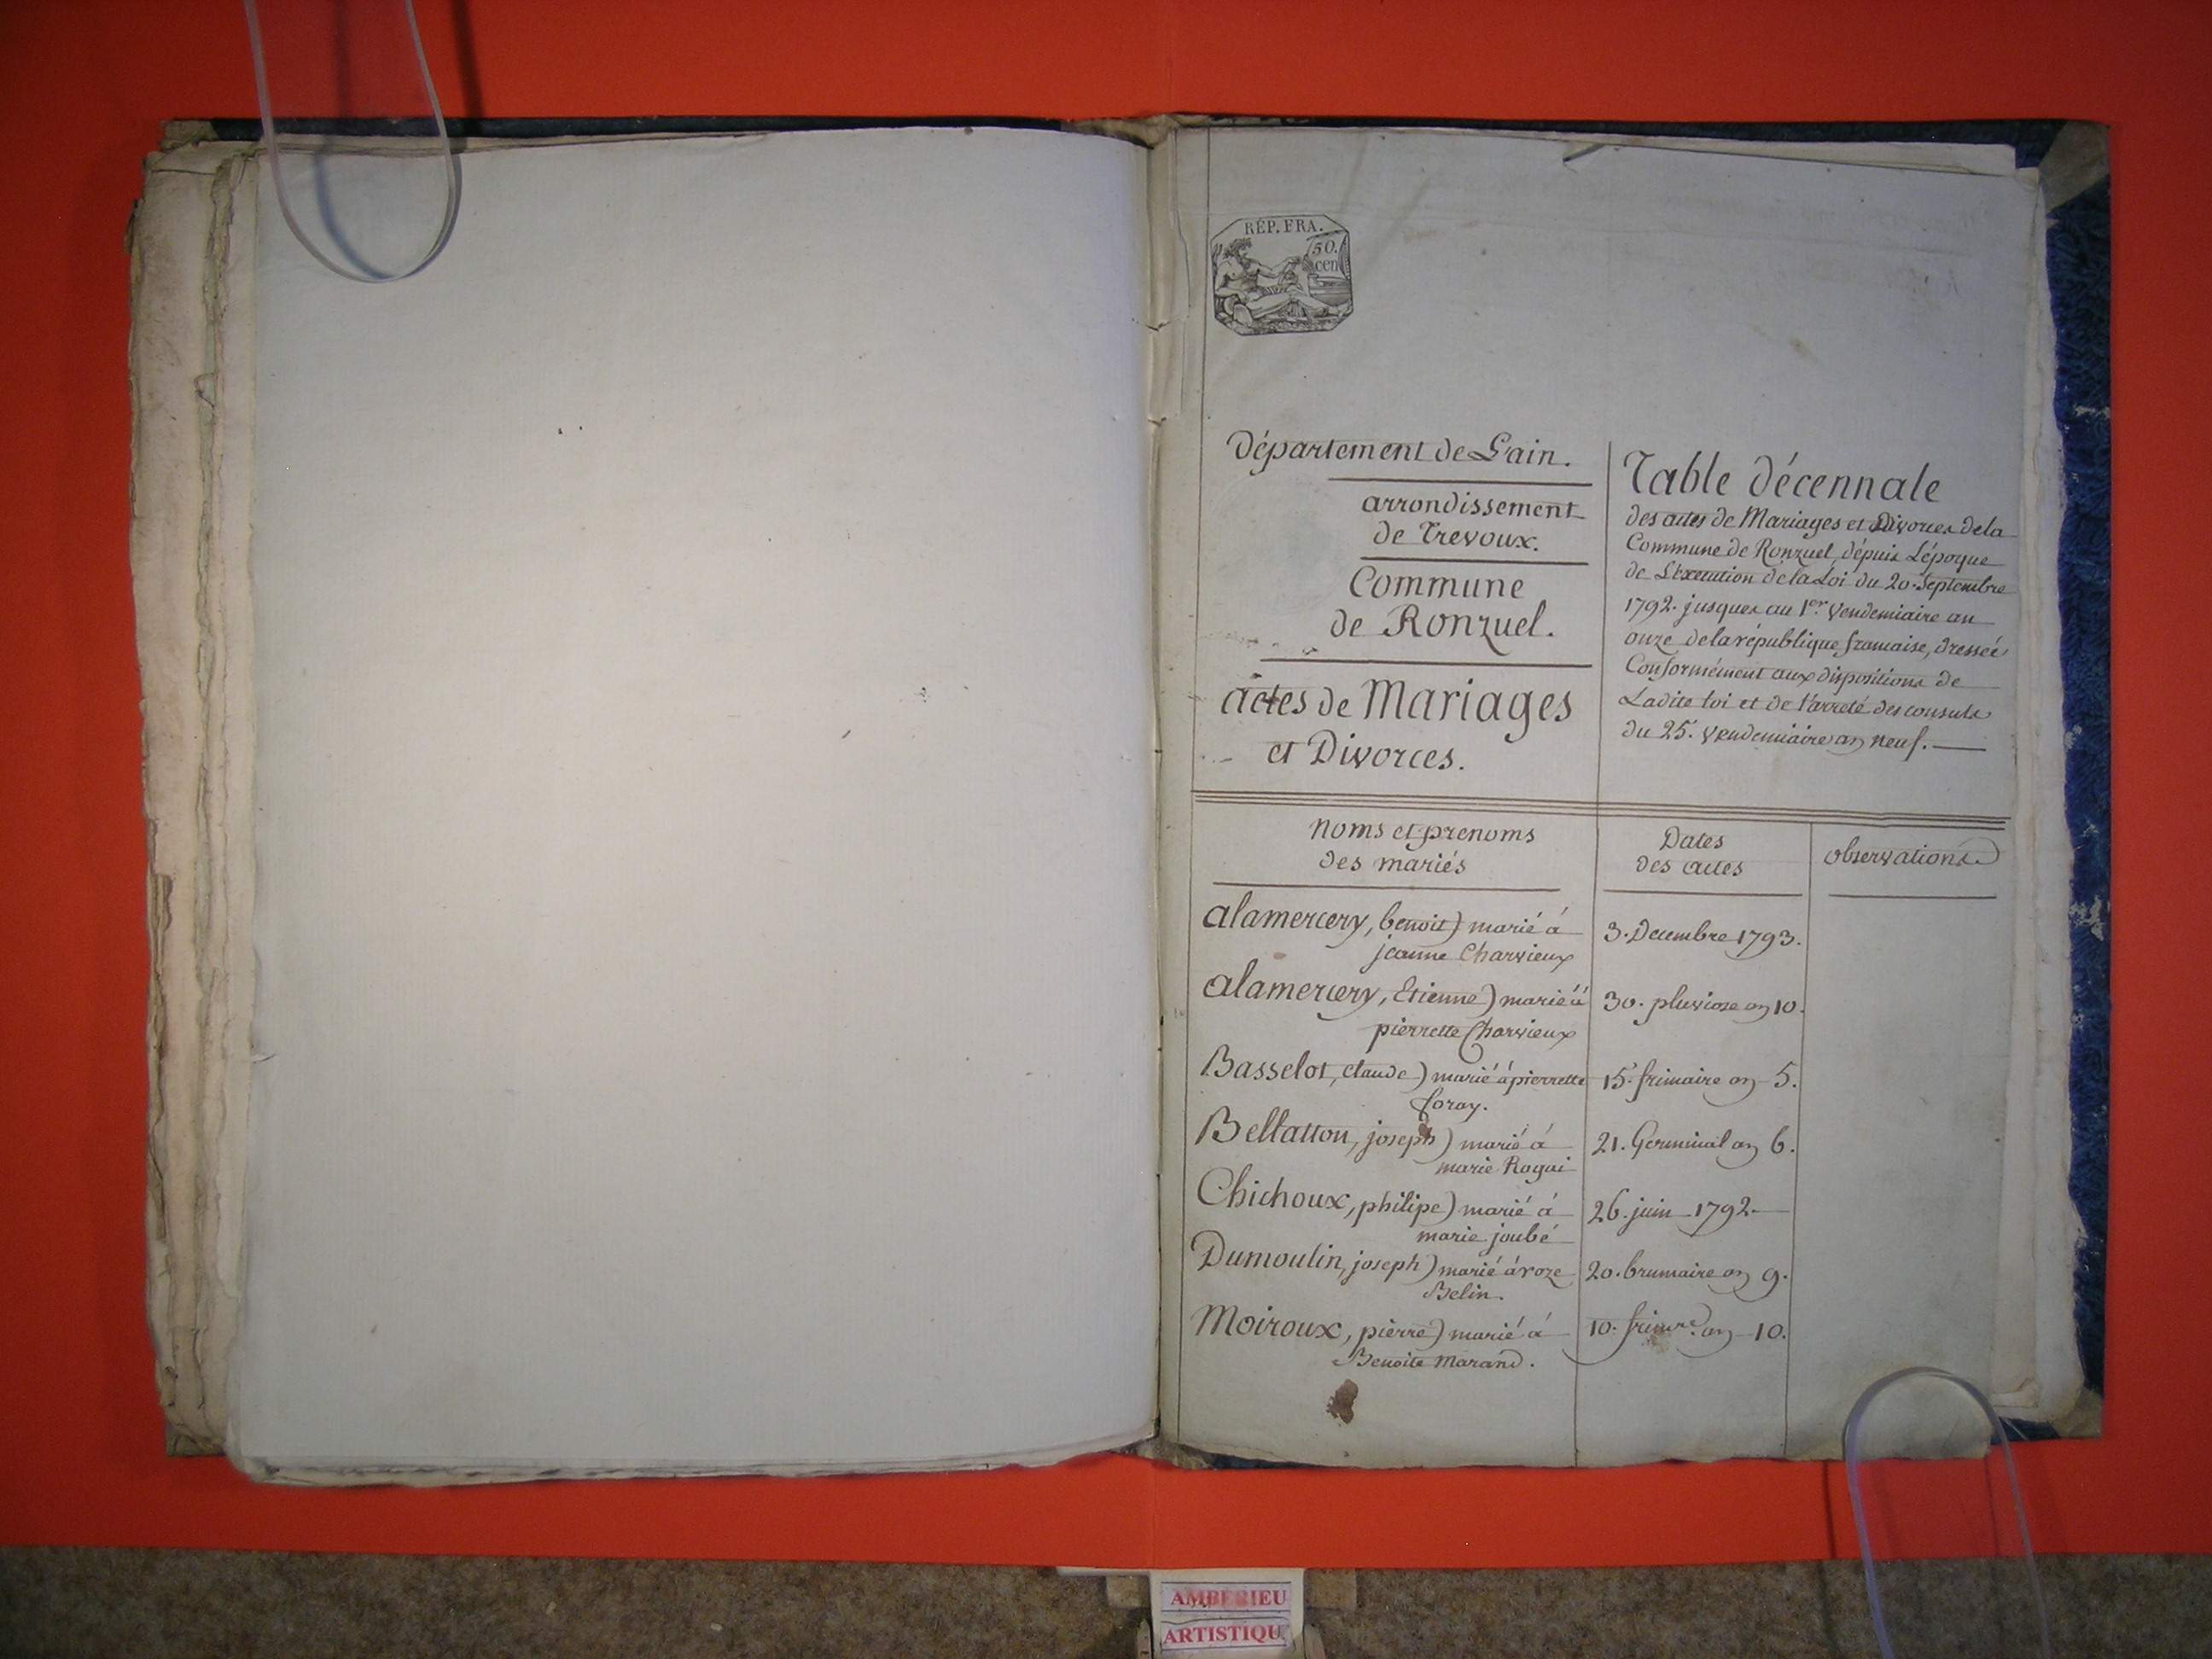 RÉP. FRA.
50.
cen
Département de L'ain.
arrondissement
de Trevoux.
Commune
de Ronzuel.
actes de Mariages
et Divorces.
Table décennale
des actes de Mariages et Divorces de la
Commune de Ronzuel, dépuis L'époque
de L'execution de la Loi du 20. Septembre
1792. jusques au 1er. Vendemiaire an
onze de la république francaise, dressée
Conformément aux dispositions de
Ladite loi et de l'arreté des consuls
du 25. Vendemiaire an neuf.
noms et prenoms
des mariés
Dates
des actes
observations
alamercery, benoit) marié à 3. Decembre 1793.
jeanne Charvieux
alamercery, Etienne) marié à 30. pluviose an 10.
pierrette Charvieux
Basselot, claude) marié à pierrette 15. frimaire an 5.
foray.
Bellatton, joseph) marié à 21. Germinal an 6.
marie Rogai
Chichoux, philipe) marié à 26. juin 1792.
marie joubé
Dumoulin, joseph) marié à roze 20. brumaire an 9.
Belin.
Moiroux, pierre) marié à 10. frimre. an 10.
Benoite Marand.
AMBERIEU
ARTISTIQU